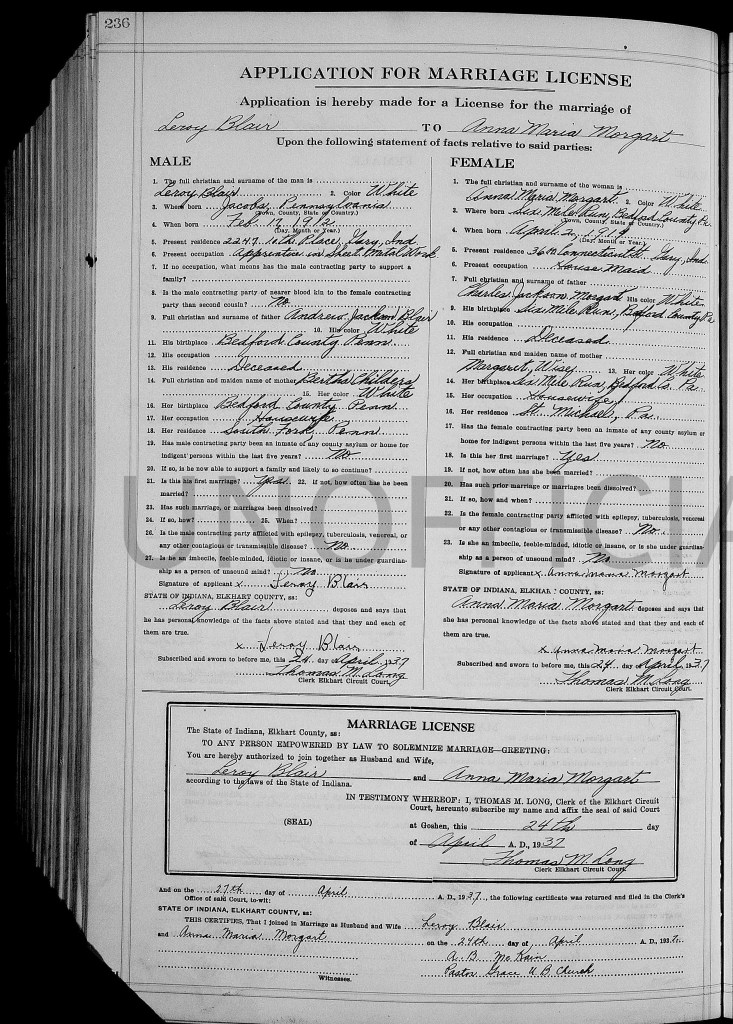 236
APPLICATION FOR MARRIAGE LICENSE
Application is hereby made for a License for the marriage of
Leroy Blair TO Anna Maria Morgart
Upon the following statement of facts relative to said parties:
MALE
1. The full christian and surname of the man is
Leroy Blair 2. Color White
3. Where born Jacobs, Pennsylvania
(Town, County, State or Country.)
4. When born Feb. 17, 1912
(Day, Month or Year.)
5. Present residence 2247 10th Place, Gary, Ind.
6. Present occupation Apprentice in Sheet Metal Work
7. If no occupation, what means has the male contracting party to support a
family?
8. Is the male contracting party of nearer blood kin to the female contracting
party than second cousin? No
9. Full christian and surname of father Andrew Jackson Blair
10. His color White
11. His birthplace Bedford County Penn.
12. His occupation
13. His residence Deceased
14. Full christian and maiden name of mother Bertha Childers
15. Her color White
16. Her birthplace Bedford County Penn
17. Her occupation Housewife
18. Her residence South Fork, Penn
19. Has male contracting party been an inmate of any county asylum or home for
indigent persons within the last five years? No
20. If so, is he now able to support a family and likely to so continue?
21. Is this his first marriage? Yes 22. If not, how often has he been
married?
23. Has such marriage, or marriages been dissolved?
24. If so, how? 25. When?
26. Is the male contracting party afflicted with epilepsy, tuberculosis, venereal, or
any other contagious or transmissible disease? No
27. Is he an imbecile, feeble-minded, idiotic or insane, or is he under guardian-
ship as a person of unsound mind? No
Signature of applicant x Leroy Blair
STATE OF INDIANA, ELKHART COUNTY, ss:
Leroy Blair deposes and says that
he has personal knowledge of the facts above stated and that they and each of
them are true.
x Leroy Blair
Subscribed and sworn to before me, this 24 day of April 1937
Thomas M. Long
Clerk Elkhart Circuit Court.
FEMALE
1. The full christian and surname of the woman is
Anna Maria Morgart 2. Color White
3. Where born Six Mile Run, Bedford County Pa
(Town, County, State or Country.)
4. When born April 2, 1919
(Day, Month or Year.)
5. Present residence Connecticut St. Gary, Ind.
6. Present occupation House Maid
7. Full christian and surname of father
Charles Jackson Morgart 8. His color White
9. His birthplace Six Mile Run, Bedford County Pa
10. His occupation
11. His residence Deceased
12. Full christian and maiden name of mother
Margaret Wisey 13. Her color White
14. Her birthplace Six Mile Run, Bedford Co. Pa.
15. Her occupation Housewife
16. Her residence St. Michael, Pa.
17. Has the female contracting party been an inmate of any county asylum or
home for indigent persons within the last five years? No
18. Is this her first marriage? Yes
19. If not, how often has she been married?
20. Has such prior marriage or marriages been dissolved?
21. If so, how and when?
22. Is the female contracting party afflicted with epilepsy, tuberculosis, venereal
or any other contagious or transmissible disease? No
23. Is she an imbecile, feeble-minded, idiotic or insane, or is she under guardian-
ship as a person of unsound mind? No
Signature of applicant x Anna maria morgart
STATE OF INDIANA, ELKHART COUNTY, ss:
Anna Maria Morgart deposes and says that
she has personal knowledge of the facts above stated and that they and each of
them are true.
x Anna maria morgart
Subscribed and sworn to before me, this 24 day of April 1937
Thomas M. Long
Clerk Elkhart Circuit Court.
UNOFFICIA
MARRIAGE LICENSE
The State of Indiana, Elkhart County, ss:
TO ANY PERSON EMPOWERED BY LAW TO SOLEMNIZE MARRIAGE—GREETING:
You are hereby authorized to join together as Husband and Wife,
Leroy Blair and Anna Maria Morgart
according to the laws of the State of Indiana.
IN TESTIMONY WHEREOF: I, THOMAS M. LONG, Clerk of the Elkhart Circuit
Court, hereunto subscribe my name and affix the seal of said Court
(SEAL) at Goshen, this 24th day
of April A. D., 1937
Thomas M. Long
Clerk Elkhart Circuit Court.
And on the 27th day of April A. D., 1937, the following certificate was returned and filed in the Clerk's
Office of said Court, to-wit:
STATE OF INDIANA, ELKHART COUNTY, ss:
THIS CERTIFIES, That I joined in Marriage as Husband and Wife Leroy Blair
and Anna Maria Morgart on the 24th day of April A. D., 1937.
A. B. McKain
Pastor Grace U B Church
Witnesses.